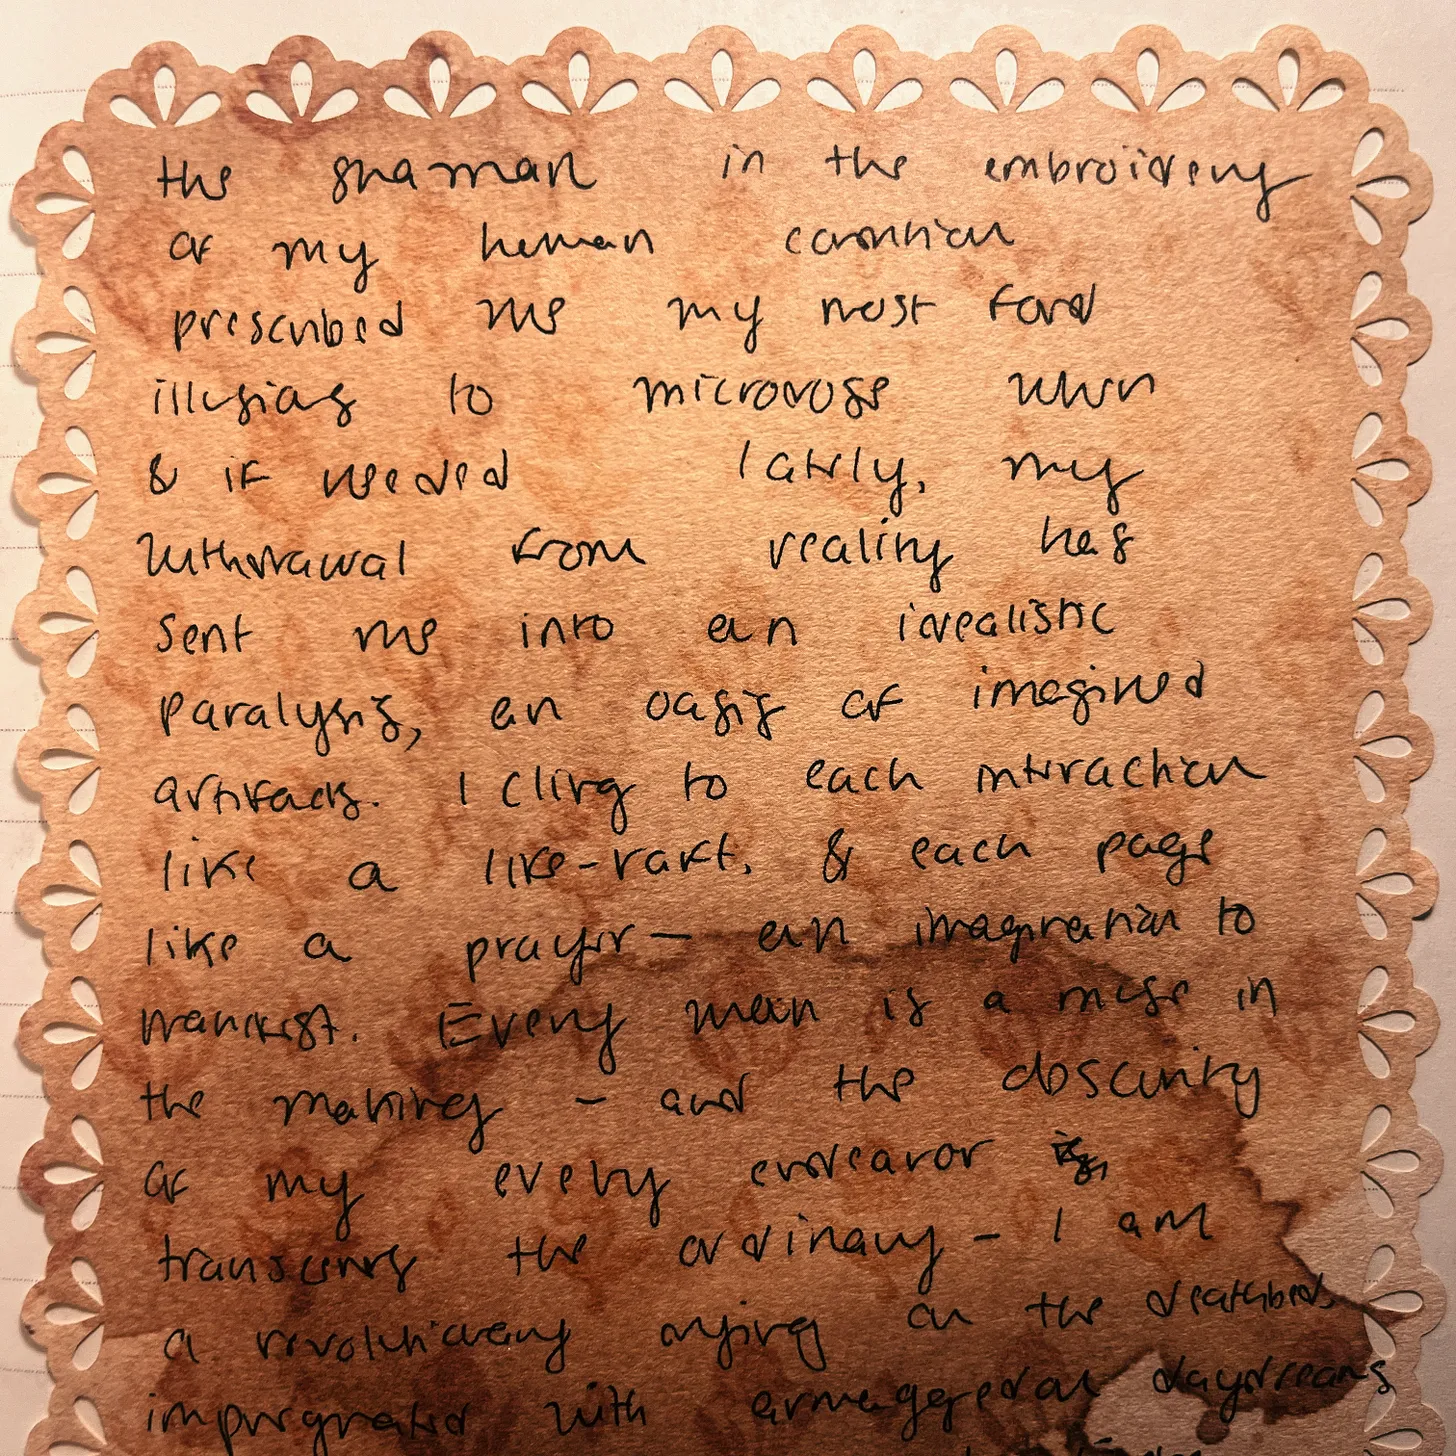 the shaman in the embroidery
of my human condition
prescribed me my most fond
illusions to microdose when
& if needed lately, my
withdrawal from reality has
sent me into an idealistic
paralysis, an oasis of imagined
artifacts. I cling to each interaction
like a life-raft, & each page
like a prayer — an imagination to
manifest. Every man is a muse in
the making - and the obscurity
of my every endeavor
transcends the ordinary - I am
a revolutionary dying on the deathbed,
impregnated with armageddon daydreams